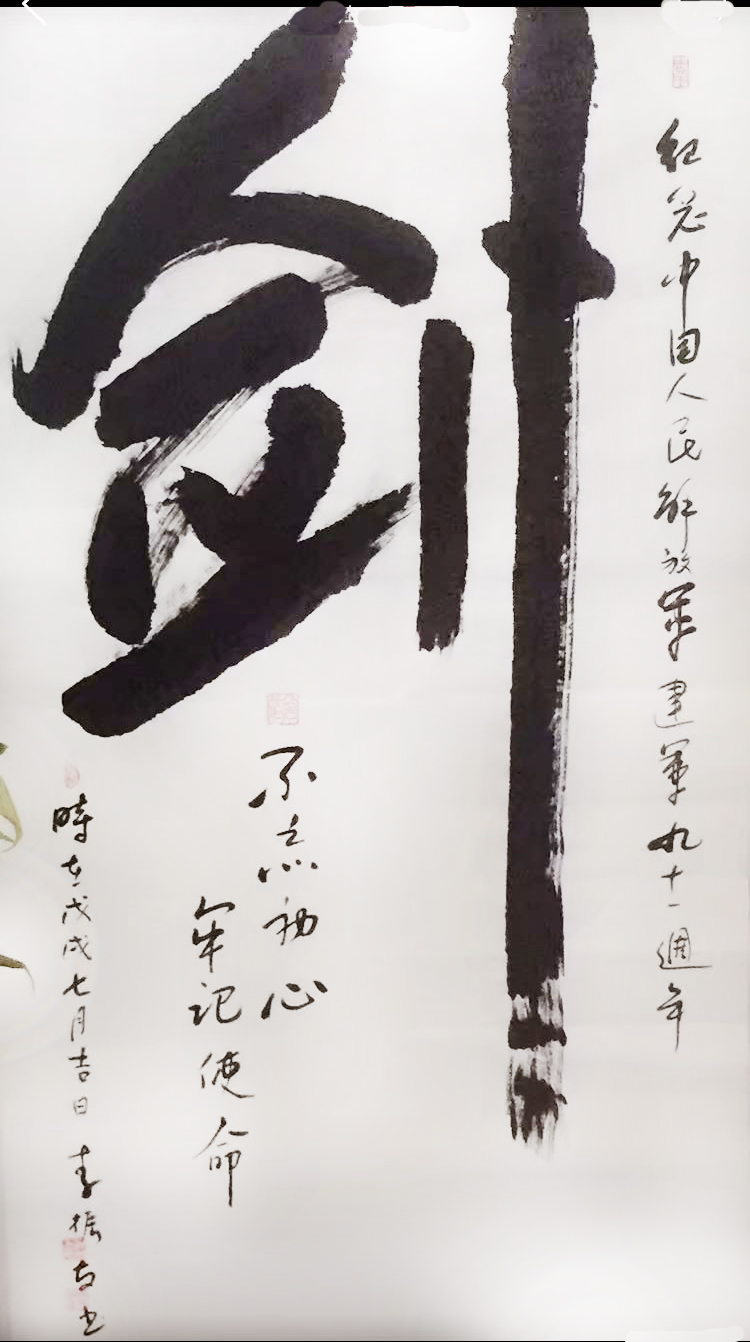 纪念中国人民解放军建军九十一週年
剑
不忘初心
牢记使命
時在戊戌七月吉日 李振书